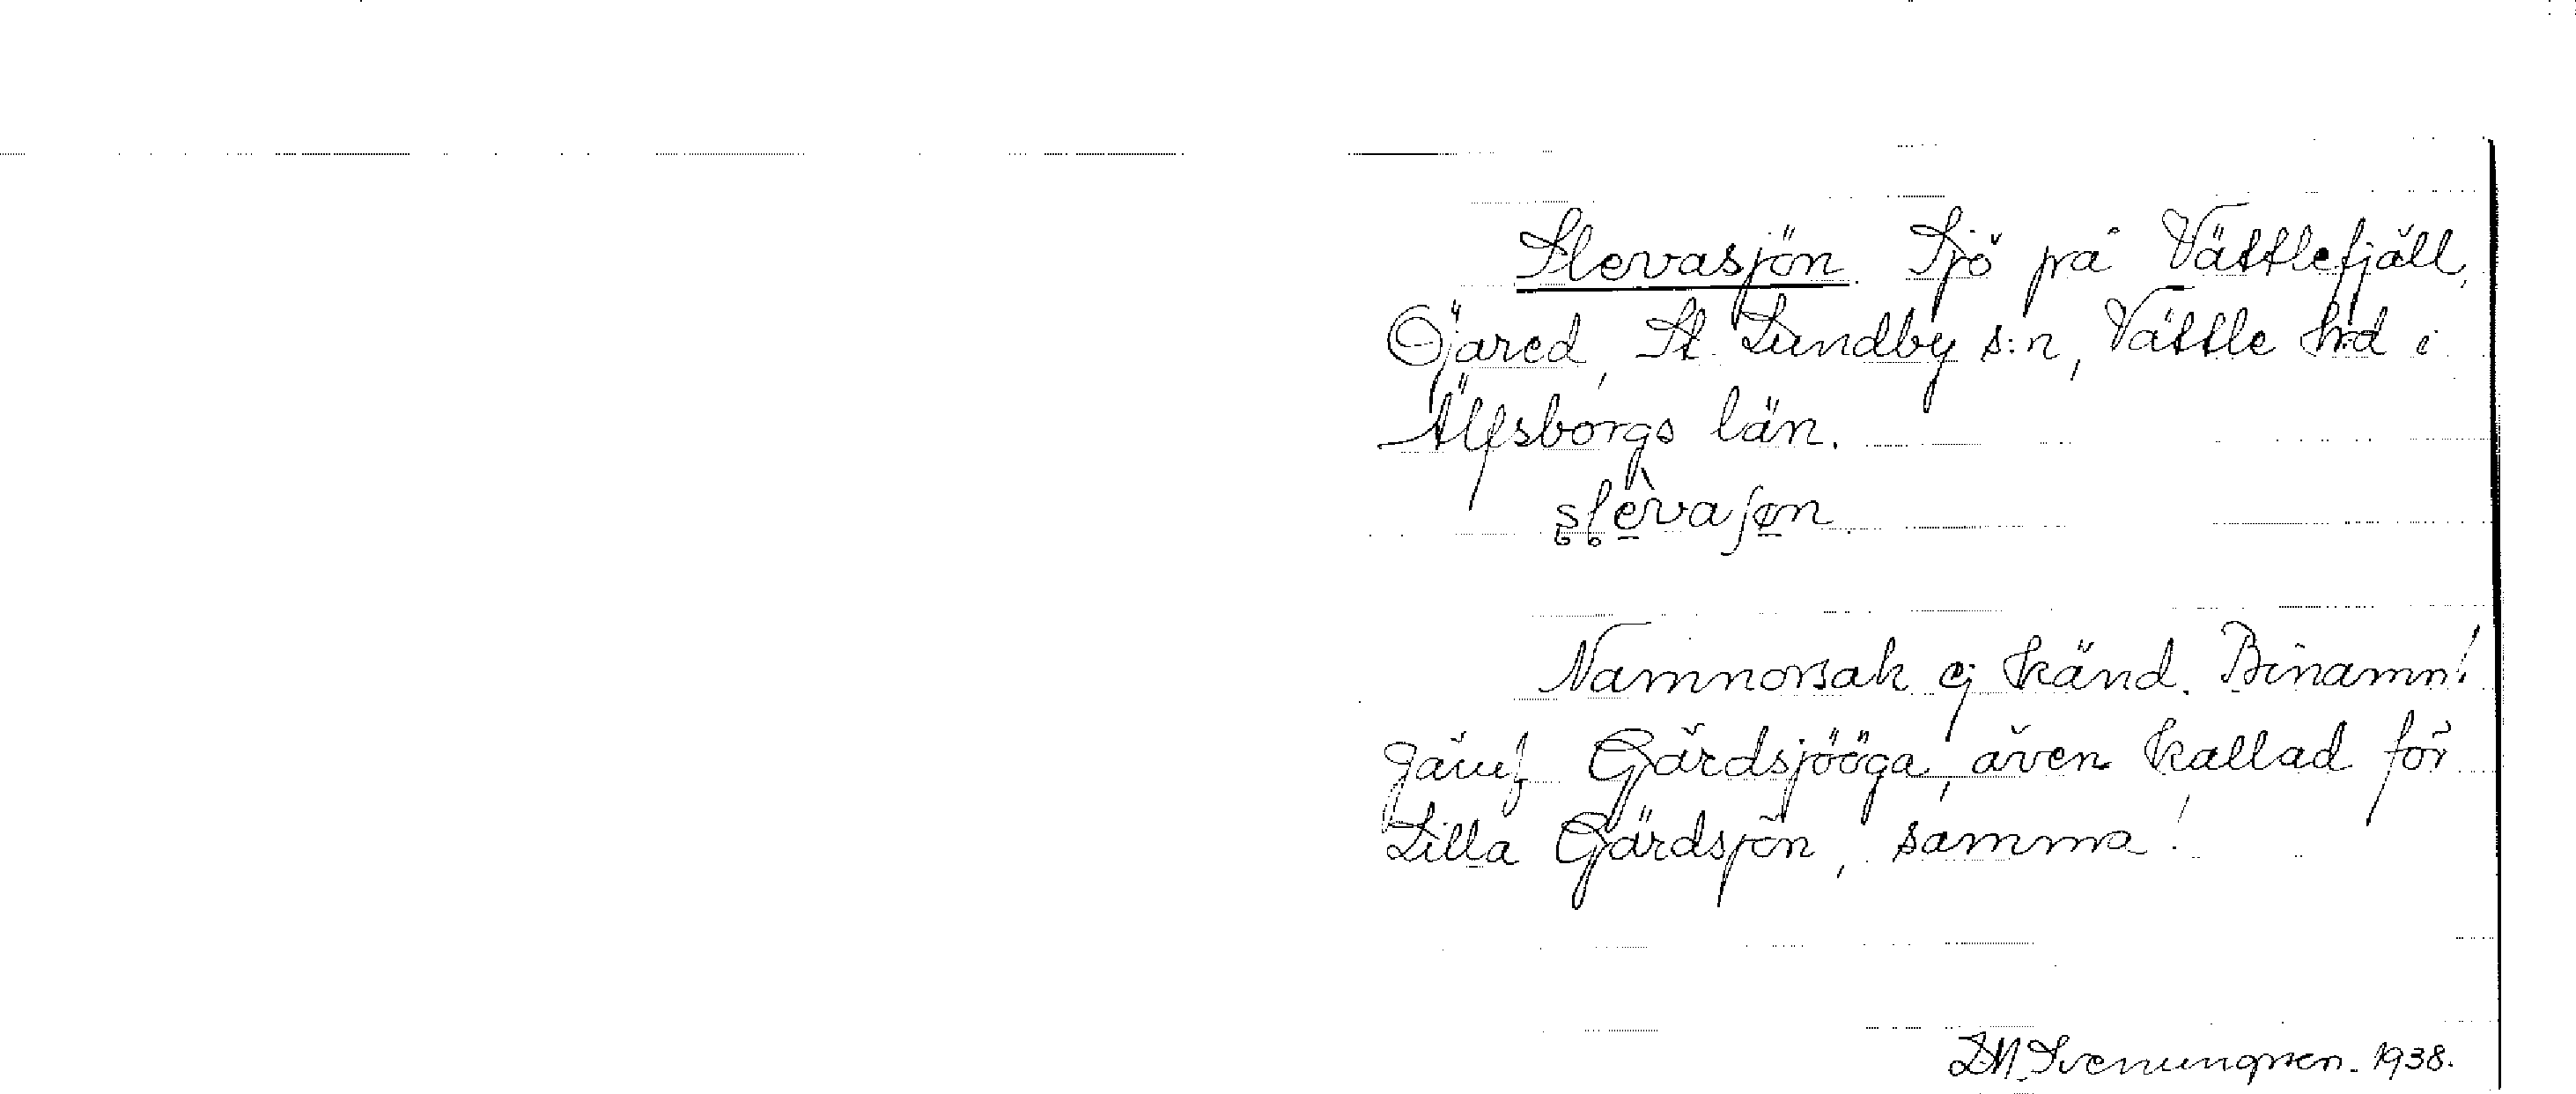 Slevasjön. Sjö på Vättlefjäll,
Öjared, St. Lundby s:n, Vättle hd i
Älfsborgs län.
slèvaʃøn.
Namnorsak ej känd. Binamn!
jämf Gärdsjööga, även kallad för
Lilla Gärdsjön, samma!
L.M. Svenungsson. 1938.